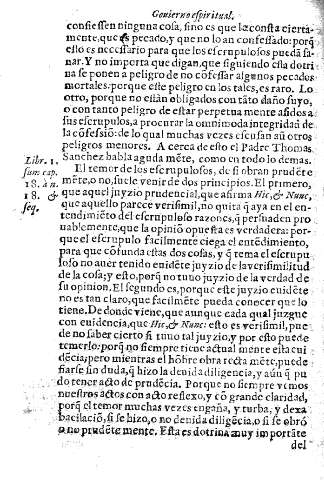 Gouierno espiritual.
confiessen ninguna cosa, sino es que la consta cierta-
mente, que es pecado, y que no lo an confessado: porq̃
ello es necessario para que los escrupulosos puedã sa-
nar. Y no importa que digan, que siguiendo esta dotri
na se ponen a peligro de no cõfessar algunos pecados
mortales: porque este peligro en los tales, es raro. Lo
otro, porque no estàn obligados con tãto daño suyo,
o con tanto peligro de estar perpetua mẽte asidos a
sus escrupulos, a procurar la omnimoda integridad de
la cõfesiõ: de lo qual muchas vezes escusan aũ otros
peligros menores. A cerca de esto el Padre Thomas
Libr. 1. Sanchez habla aguda mẽte, como en todo lo demas.
sum. cap. El temor de los escrupulosos, de si obran prudẽte
18. à n. mẽte, o no, suele venir de dos principios. El primero,
18. & que aquel juyzio prudencial, que afirma Hic, & Nunc,
seq. que aquello parece verisimil, no quita q̃ aya en el en-
tendimiẽto dẽl escrupuloso razones, q̃ persuaden pro
uablemente, que la opiniõ opuesta es verdadera: por-
que el escrupulo facilmente ciega el entẽdimiẽto,
para que cõfunda estas dos cosas, y q̃ tema el escrupu
loso no auer tenido euidẽte juyzio de la verisimilitud
de la cosa; y esto, porq̃ no tuuo juyzio de la verdad de
su opinion. El segundo es, porque este juyzio euidẽte
no es tan claro, que facilmẽte pueda conocer que lo
tiene. De donde viene, que aunque cada qual juzgue
con euidencia, que Hic, & Nunc: esto es verisimil, pue-
de no saber cierto si tuuo tal juyzio, y por esto puede
temerlo: porq̃ no siempre tiene actual mente esta eui
dẽcia; pero mientras el hõbre obra recta mẽte, puede
fiarse sin duda, q̃ hizo la deuida diligẽcia, y aũn q̃ pu
do tener acto de prudẽcia. Porque no siempre vemos
nuestros actos con acto reflexo, y cõ grande claridad,
porq̃ el temor muchas vezes engaña, y turba, y dexa
bacilaciõ, si se hizo, o no deuida diligẽcia, o si se obrò
o no prudẽte mente. Esta es dotrina muy importãte
del